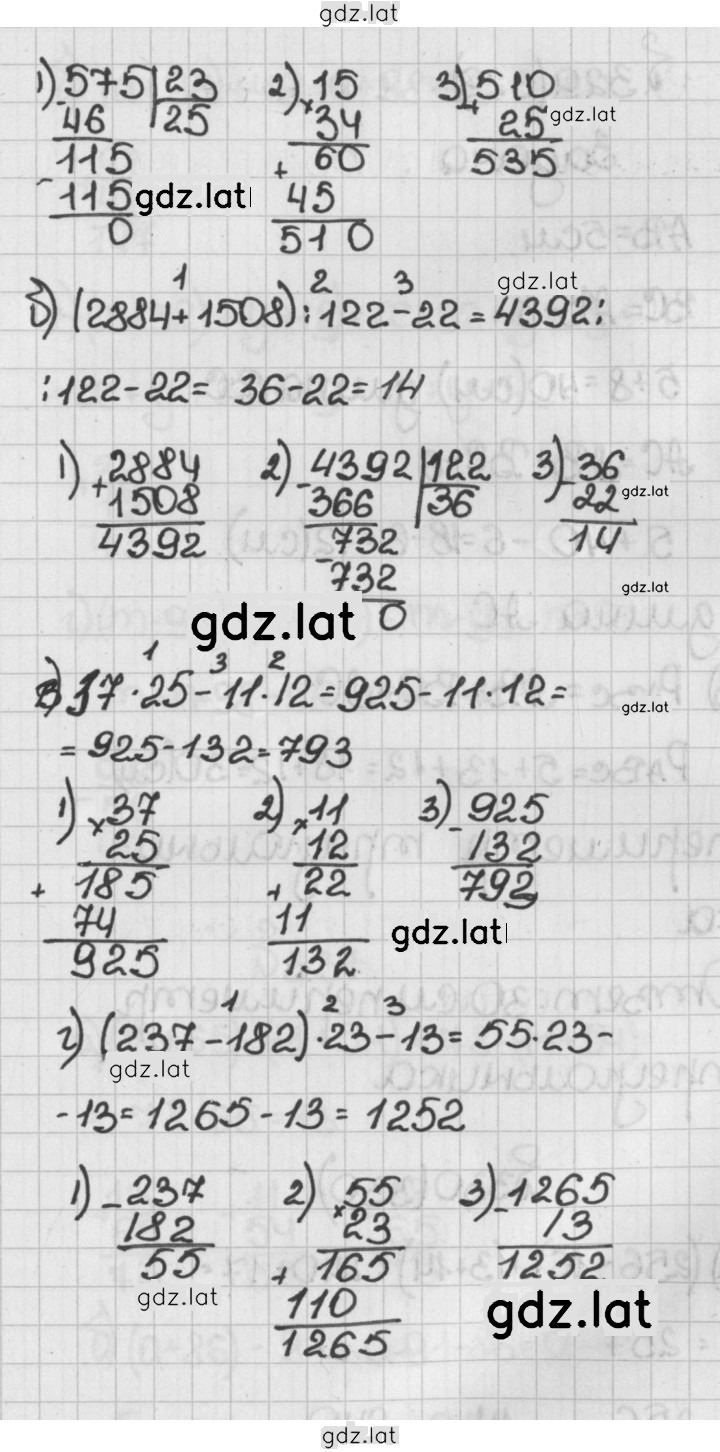 gdz.lat
1) 575 | 23 2) 15 3) 510
- 46 | 25 × 34 + 25 gdz.lat
115 60 535
- 115 gdz.lat + 45
0 510
1 2 3 gdz.lat
б) (2884+1508):122-22=4392:
:122-22= 36-22=14
1) + 2884 2) - 4392 | 122 3) - 36
1508 366 | 36 22 gdz.lat
4392 - 732 14
732 gdz.lat
gdz.lat 0
1 3 2
в) 37·25-11·12=925-11·12= gdz.lat
=925-132=793
1) × 37 2) × 11 3) - 925
25 12 132
+ 185 + 22 793
74 11 gdz.lat
925 132
1 2 3
г) (237-182)·23-13=55·23-
gdz.lat
-13=1265-13=1252
1) - 237 2) × 55 3) - 1265
182 23 13
55 + 165 1252
gdz.lat 110 gdz.lat
1265
gdz.lat